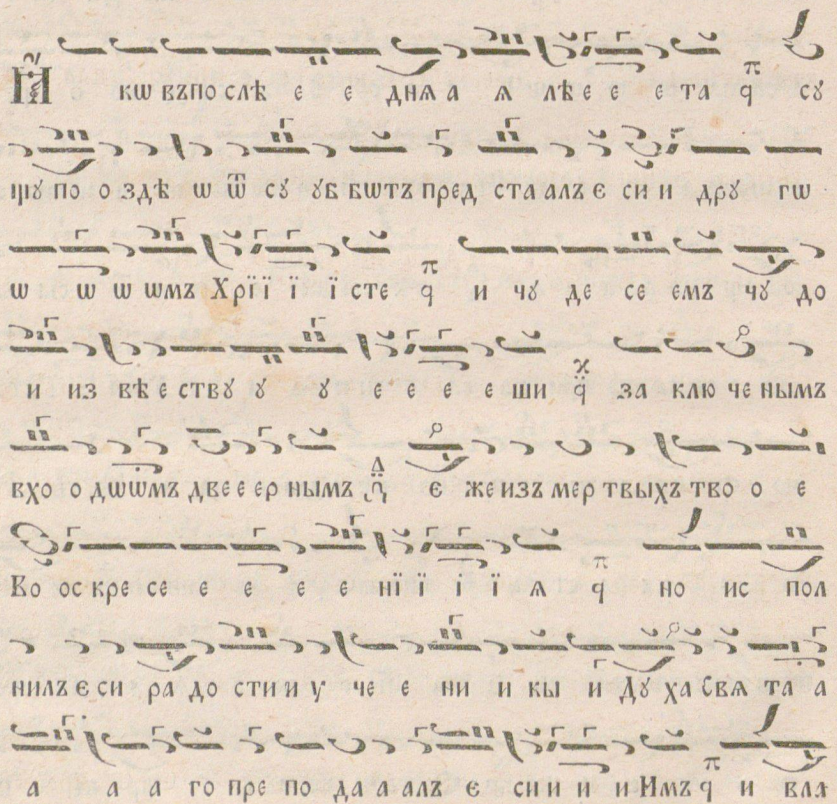 Ꙗ҆ кѡ въпо слѣ е е днѧ а ѧ лѣ е е е та ҁ π сꙋ
щꙋ по о здѣ ѡ ѿ сꙋ ꙋб бѡтъ пред ста алъ є си и дрꙋ гѡ
ѡ ѡ ѡ ѡмъ Хрїї ї ї сте ҁ π и чꙋ де се емъ чꙋ до
и из вѣ е ствꙋ ꙋ ꙋ е е е е ши ҁ за клю че нымъ
вхо о дѡѡмъ две е е ер нымъ Δ є же изъ мер твыхъ тво о е
Во ос кре се е е е е нї ї ї ї ѧ ҁ π но ис пол
нилъ є си ра до сти и у че е ни и кы и Дꙋ ха Свѧ та а
а а а го пре по да а алъ є си и и и Имъ ҁ π и вла